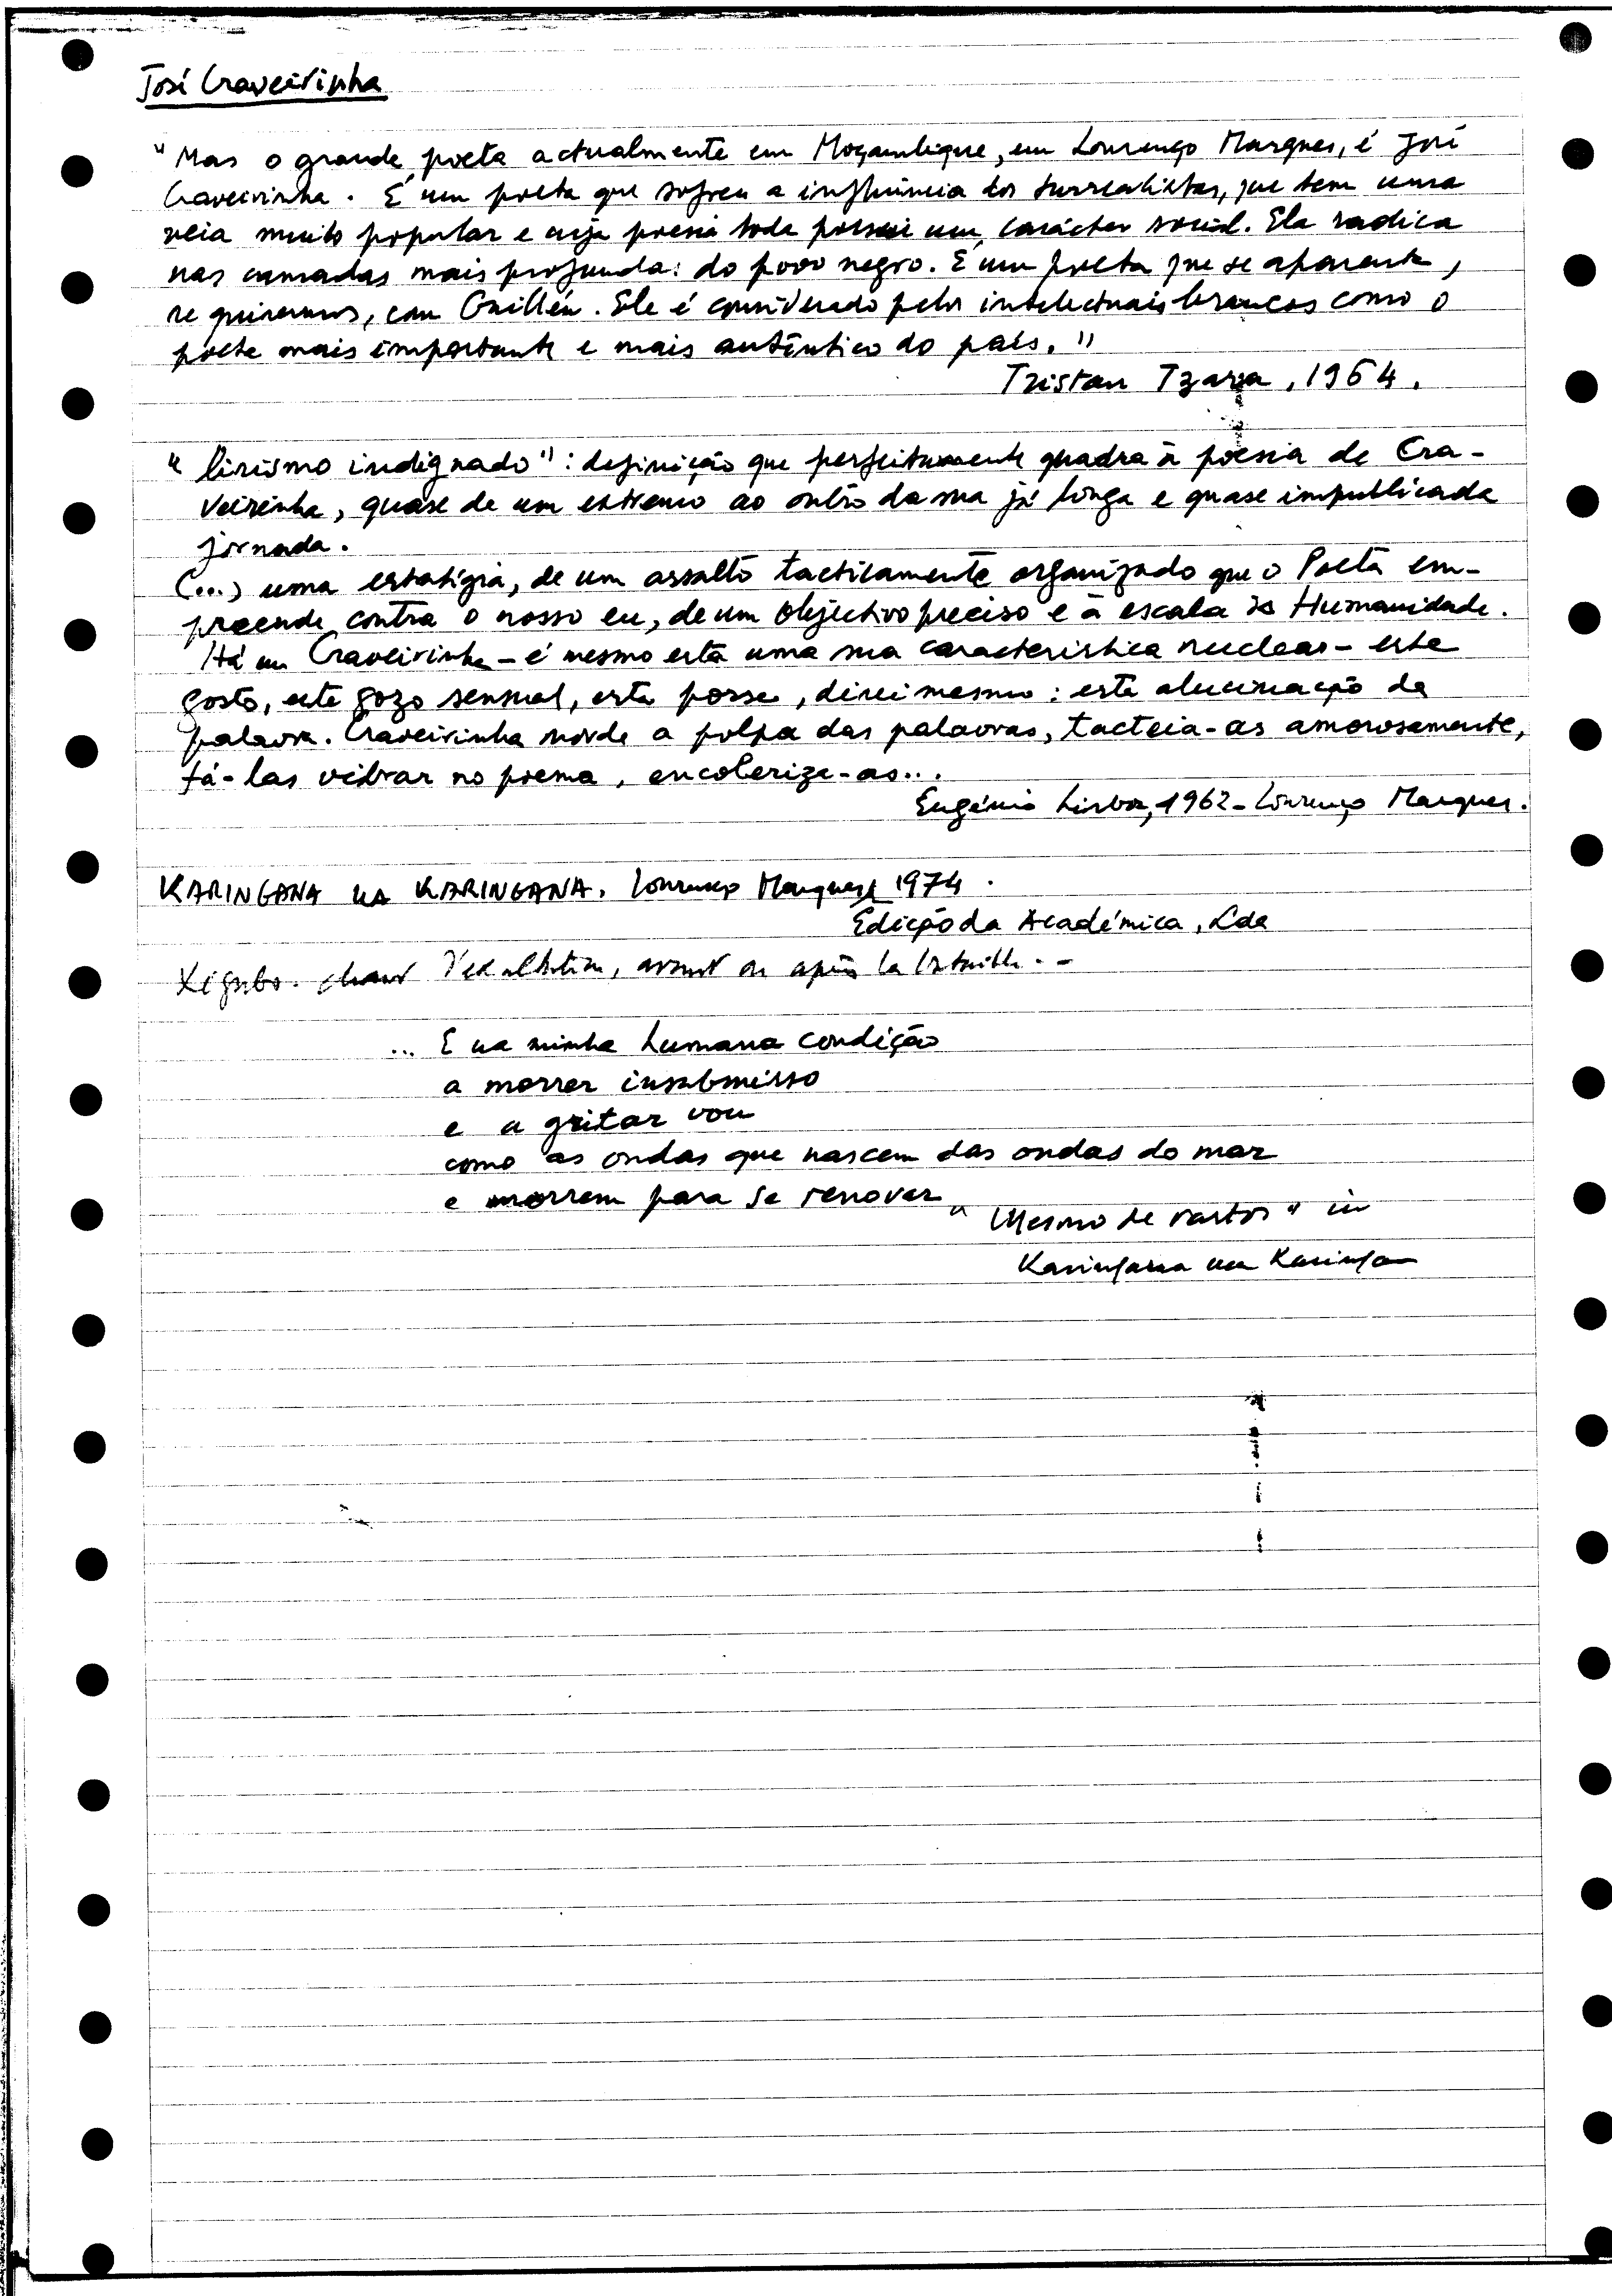 José Craveirinha
"Mas o grande poeta actualmente em Moçambique, em Lourenço Marques, é José
Craveirinha. É um poeta que sofreu a influência dos surrealistas, que tem uma
veia muito popular e cuja poesia toda possui um carácter social. Ela radica
nas camadas mais profundas do povo negro. É um poeta que se aparenta,
se quisermos, com Guillén. Ele é considerado pelos intelectuais brancos como o
poeta mais importante e mais autêntico do país."
Tristan Tzara, 1964.
"lirismo indignado": definição que perfeitamente quadra à poesia de Cra-
veirinha, quase de um extremo ao outro da sua já longa e quase impublicada
jornada.
(...) uma estratégia, de um assalto tacticamente organizado que o Poeta em-
preende contra o nosso eu, de um objectivo preciso e à escala da Humanidade.
Há em Craveirinha - é mesmo esta uma sua característica nuclear - este
gosto, este gozo sensual, esta posse, direi mesmo: esta alucinação da
palavra. Craveirinha morde a polpa das palavras, tacteia-as amorosamente,
fá-las vibrar no poema, encoleriza-as...
Eugénio Lisboa, 1962 - Lourenço Marques.
KARINGANA UA KARINGANA. Lourenço Marques 1974.
Edição da Académica, Lda
Xigubo. chant d'exaltation, avant ou après la bataille. -
... E na minha humana condição
a morrer insubmisso
e a gritar vou
como as ondas que nascem das ondas do mar
e morrem para se renovar
"Mesmo de rastos" in
Karingana ua Karinga